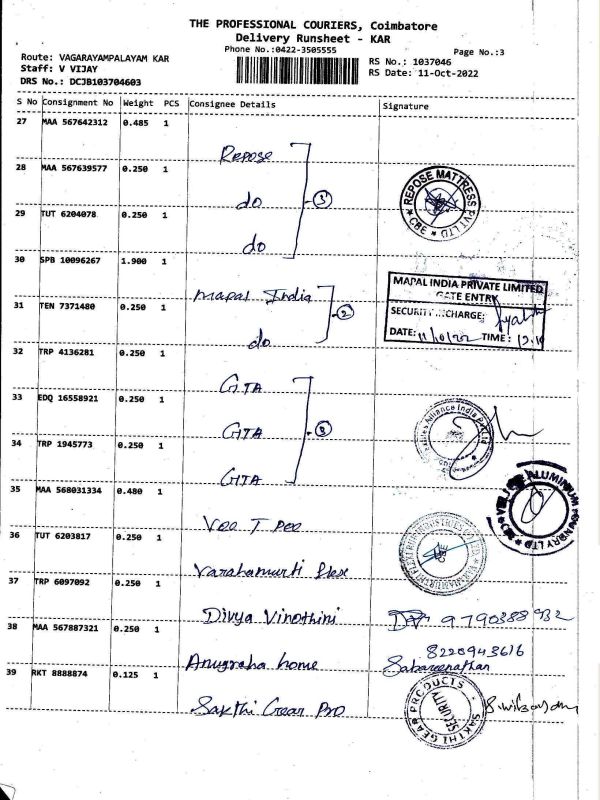 THE PROFESSIONAL COURIERS, Coimbatore
Delivery Runsheet - KAR
Phone No.:0422-3505555
Page No.:3
Route: VAGARAYAMPALAYAM KAR
RS No.: 1037046
Staff: V VIJAY
RS Date: 11-Oct-2022
DRS No.: DCJB103704603
S No Consignment No Weight PCS Consignee Details Signature
27 MAA 567642312 0.485 1
Repose
28 MAA 567639577 0.250 1
do 3
REPOSE MATTRESS PVT LTD * CBE *
29 TUT 6204078 0.250 1
do
30 SPB 10096267 1.900 1
Mapal India
MAPAL INDIA PRIVATE LIMITED
GATE ENTRY
31 TEN 7371480 0.250 1
do 2
SECURITY INCHARGE:
DATE: 11/10/22 TIME:
32 TRP 4136281 0.250 1
GTA
33 EDQ 16558921 0.250 1
GTA 3
Alliance India
34 TRP 1945773 0.250 1
GTA
35 MAA 568031334 0.480 1
Vee T Pee
ALUMINIUM FOUNDRY LTD
36 TUT 6203817 0.250 1
Varahamurti flex
37 TRP 6097092 0.250 1
Divya Vinothini
38 MAA 567887321 0.250 1
Anugraha home
8220943616
Sabareenathan
39 RKT 8888874 0.125 1
Sakthi Gear Pro
SAKTHI GEAR PRODUCTS
SECURITY